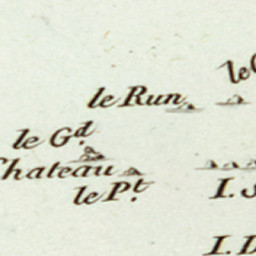 le Run
le G.d
Chateau
le P.t
I.
I.